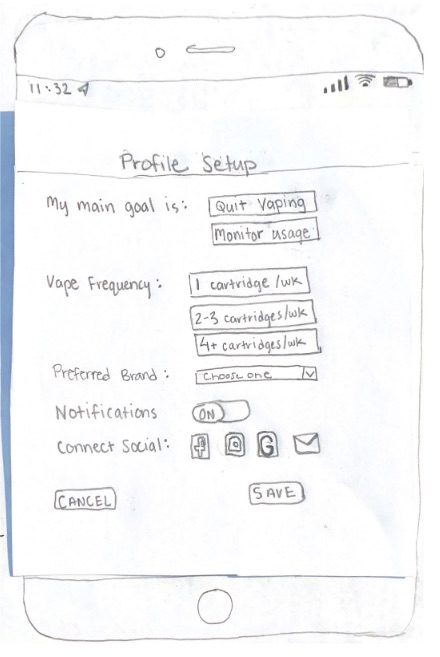 11:32
Profile Setup
My main goal is: Quit Vaping
Monitor usage
Vape Frequency: 1 cartridge/wk
2-3 cartridges/wk
4+ cartridges/wk
Preferred Brand: Choose one
Notifications ON
Connect Social: f G
CANCEL SAVE